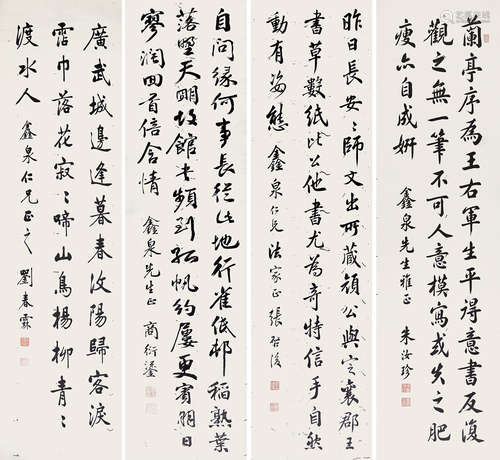 蘭亭序為王右軍生平得意書反復
觀之無一筆不可人意模寫或失之肥
瘦亦自成妍
鑫泉先生雅正 朱汝珍
昨日長安安師文出所藏顏公與定襄郡王
書草數紙比公他書尤為奇特信手自然
動有姿態
鑫泉仁兄法家正 張啓後
自問緣何事長從此地行雀低邨稻熟葉
落野天明故館書頻到孤帆約屢更賓朋日
寥濶回首倍含情
鑫泉先生正 商衍鎏
廣武城邊逢暮春汶陽歸客淚
霑巾落花寂〻啼山鳥楊柳青〻
渡水人
鑫泉仁兄正之 劉春霖